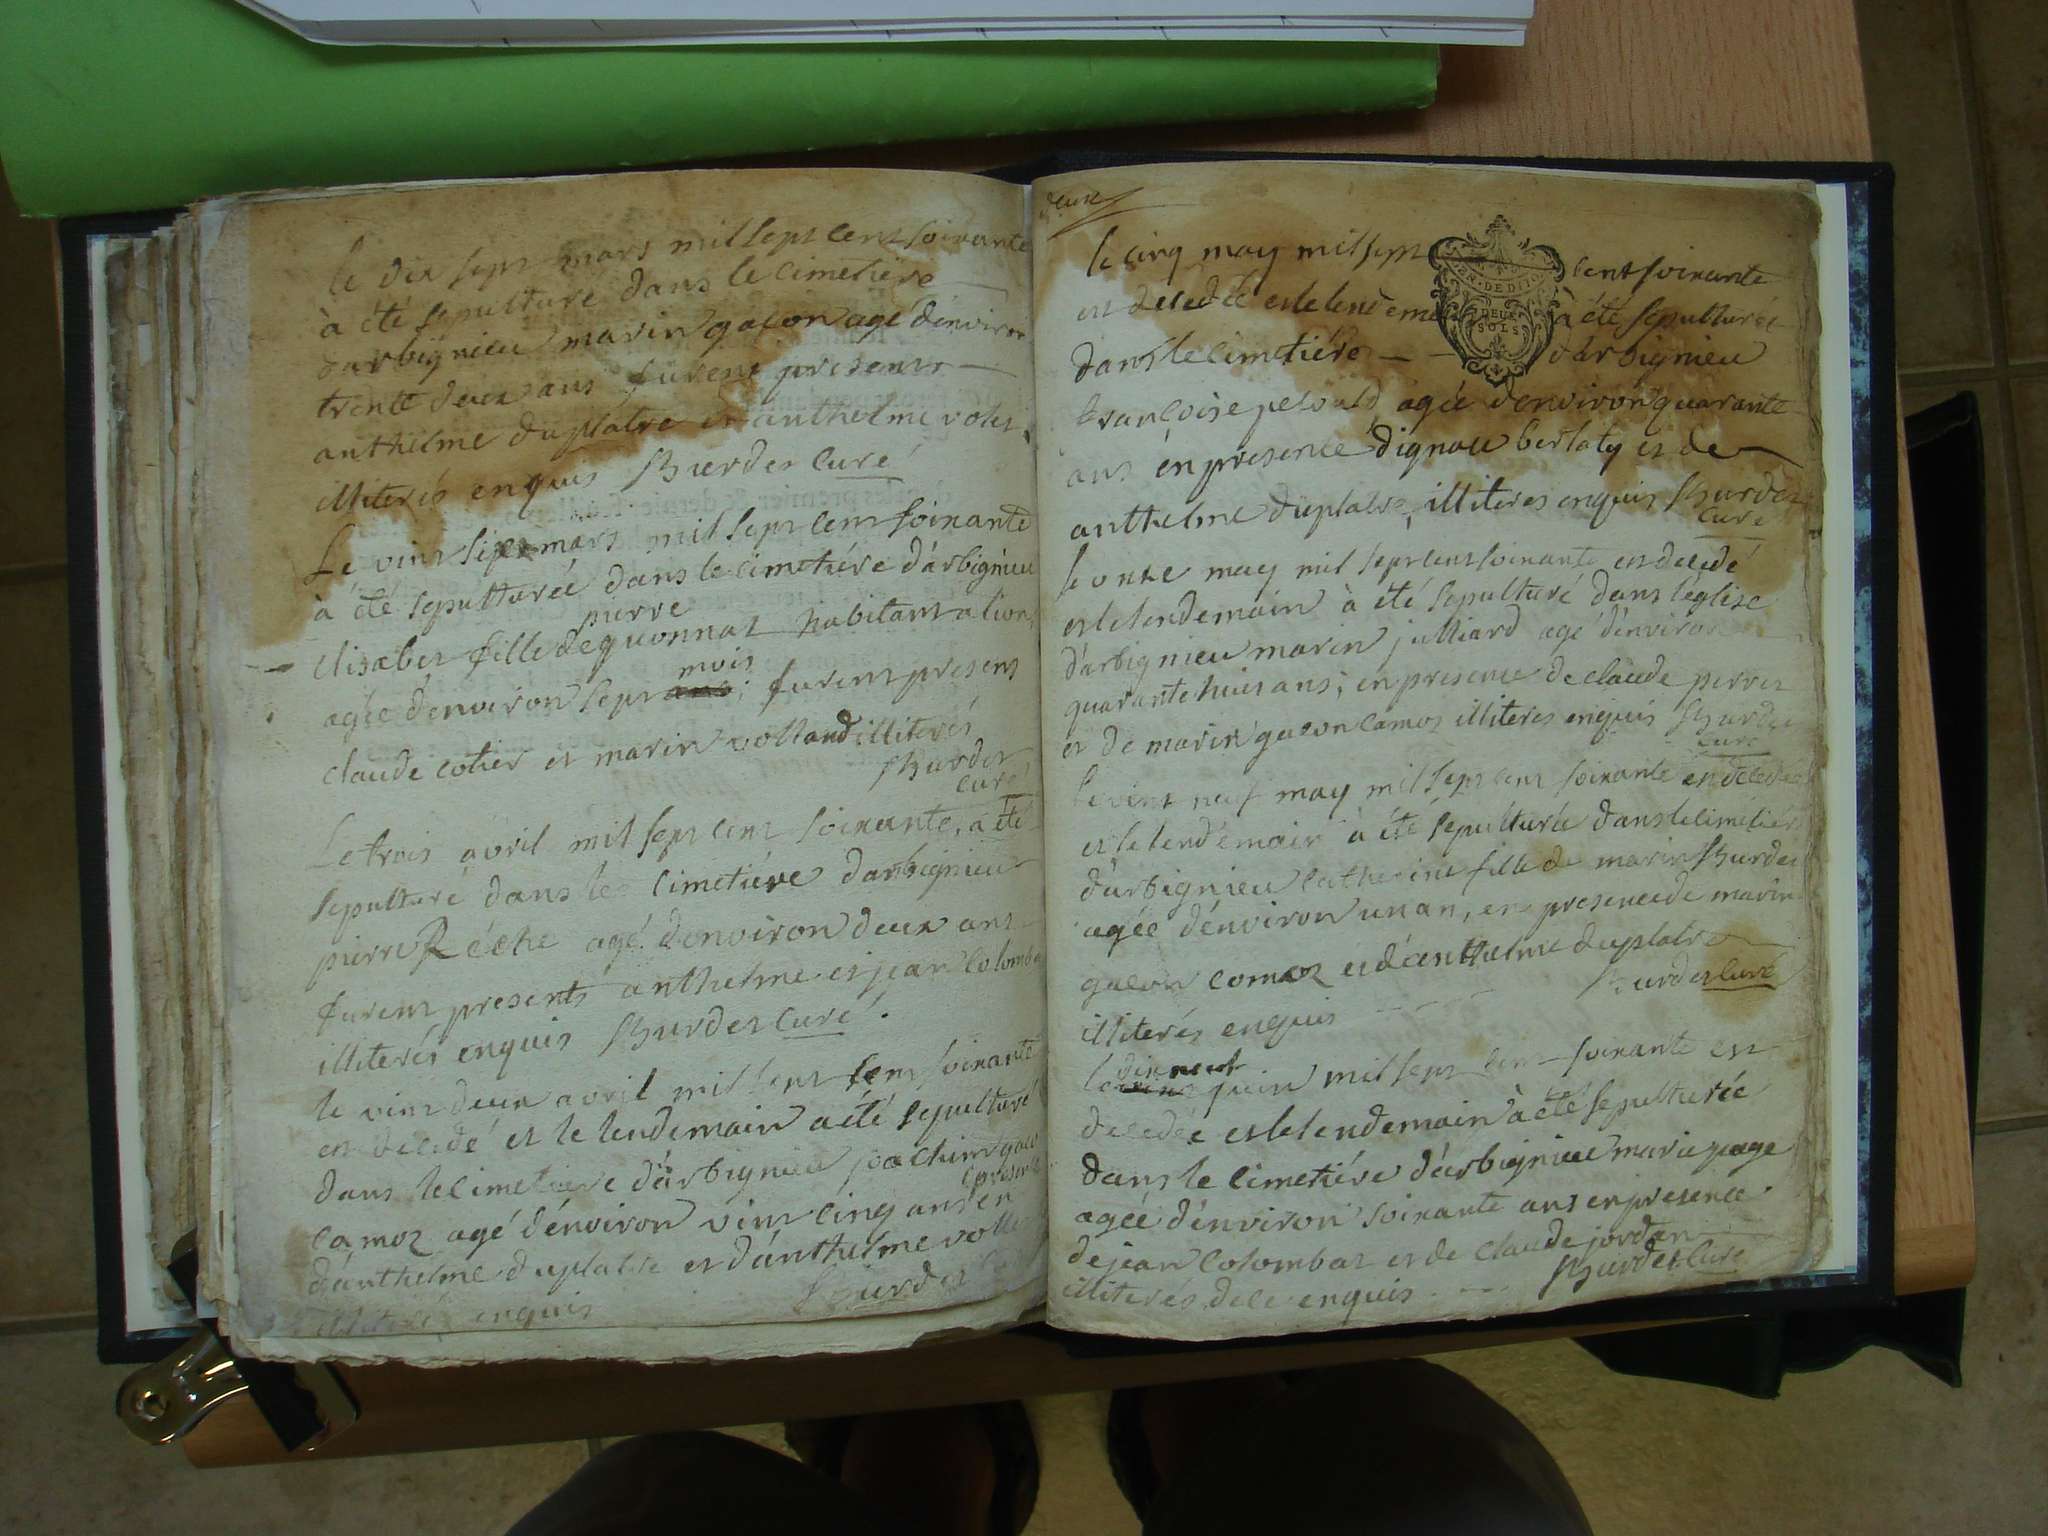 le dix sept mars mil sept cent soixante
à été sepulturé dans le cimetiére
darbignieu marin gacon agé d'environ
trente deux ans furent presents
anthelme duplatre et anthelme volet
illiterés enquis Burdet curé
Le vint sipt mars mil sept cent soixante
à été sepulturée dans le cimetiére d'arbignieu
pierre
elisabet fille de quonnaz habitant a lion
mois
agée d'environ sept ans; furent presents
claude cotier et marin volland illiterés
Burdet
curé
Le trois avril mil sept cent soixante, a été
sepulturé dans le cimetiére darbignieu
pierre Réche agé d'environ deux ans
furent presents anthelme et jean Colomba
illiterés enquis Burdet curé.
le vint deux avril mil sept cent soixante
est decedé et le lendemain a été sepulturé
dans le cimetiere d'arbignieu joachim gacon
camoz agé d'énviron vint cinq ans en
presence
d'anthelme duplatre et d'anthelme vollet
illiterés enquis Burdet
deux
le cinq may mil sept cent soixante
GEN. DE DIJON
DEUX
SOLS
est decedée et le lendemain à été sepulturée
dans le cimetiére d'arbignieu
francoise pesould agée d'environ quarante
ans en presence dignau berlaty et de
anthelme duplatre, illiteres enquis Burdet
curé
le onze may mil sept cent soixante est decedé
et le lendemain à été sepulturé dans l'église
d'arbignieu marin julliard agé d'énviron
quarante huit ans; en presence de claude perret
et de marin gacon camos illiteres enquis Burdet
curé
le vint neuf may mil sept cent soixante est decedée
et le lendemain à été sepulturée dans le cimetiére
d'arbignieu catherine fille de marin Burdet
agée d'énviron un an, en presence de marin
gacon comoz et d'anthelme duplatre
illiterés enquis Burdet curé
dix neuf
le juin mil sept cent soixante est
decedée et le lendemain à été sepulturée
dans le cimetiére d'arbignieu marie page
agée d'énviron soixante ans en presence
de jean Colombaz et de claude jordan
illiterés de ce enquis Burdet curé